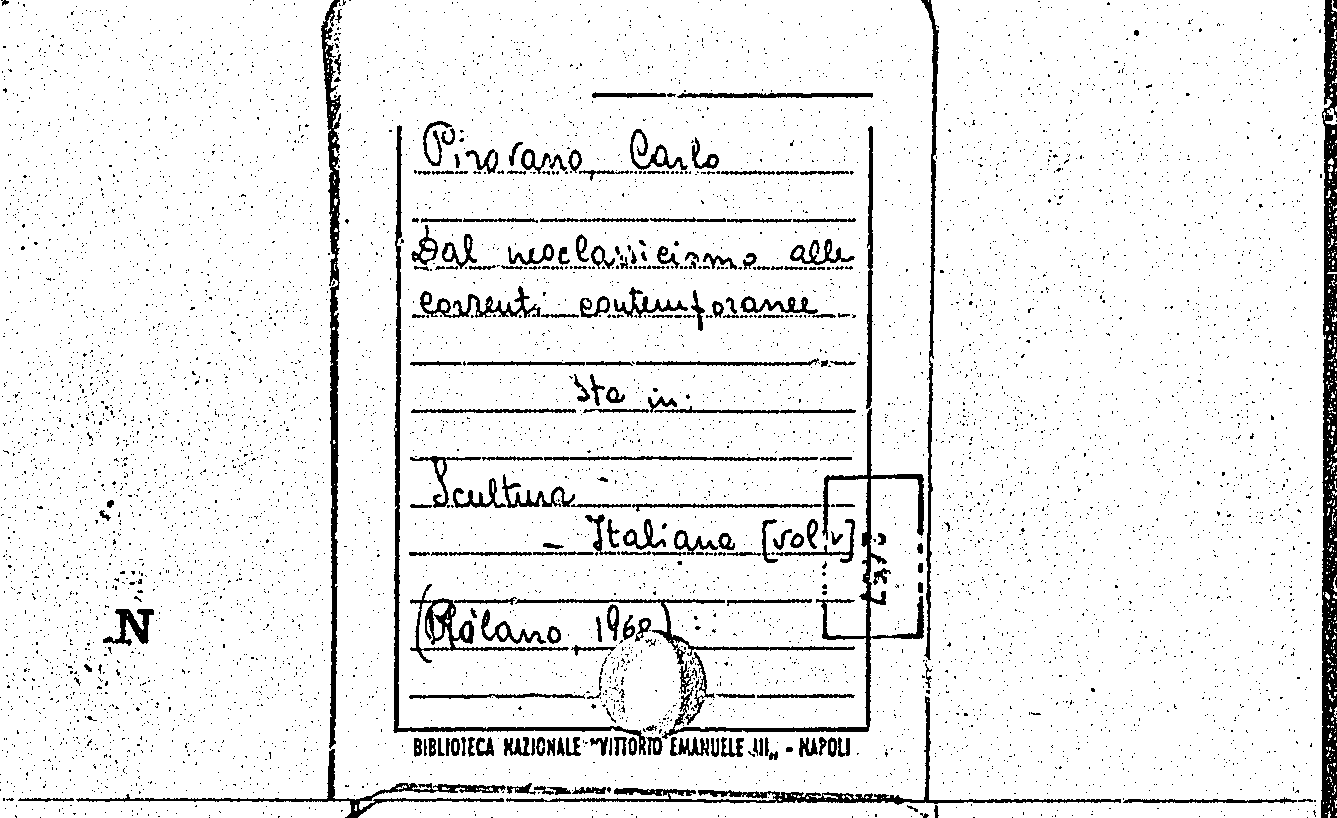 Pirovano, Carlo
Dal neoclassicismo alle
correnti contemporanee
Sta in:
Scultura
- Italiana [vol. V]
(Milano, 1968)
N
BIBLIOTECA NAZIONALE "VITTORIO EMANUELE III„ - NAPOLI